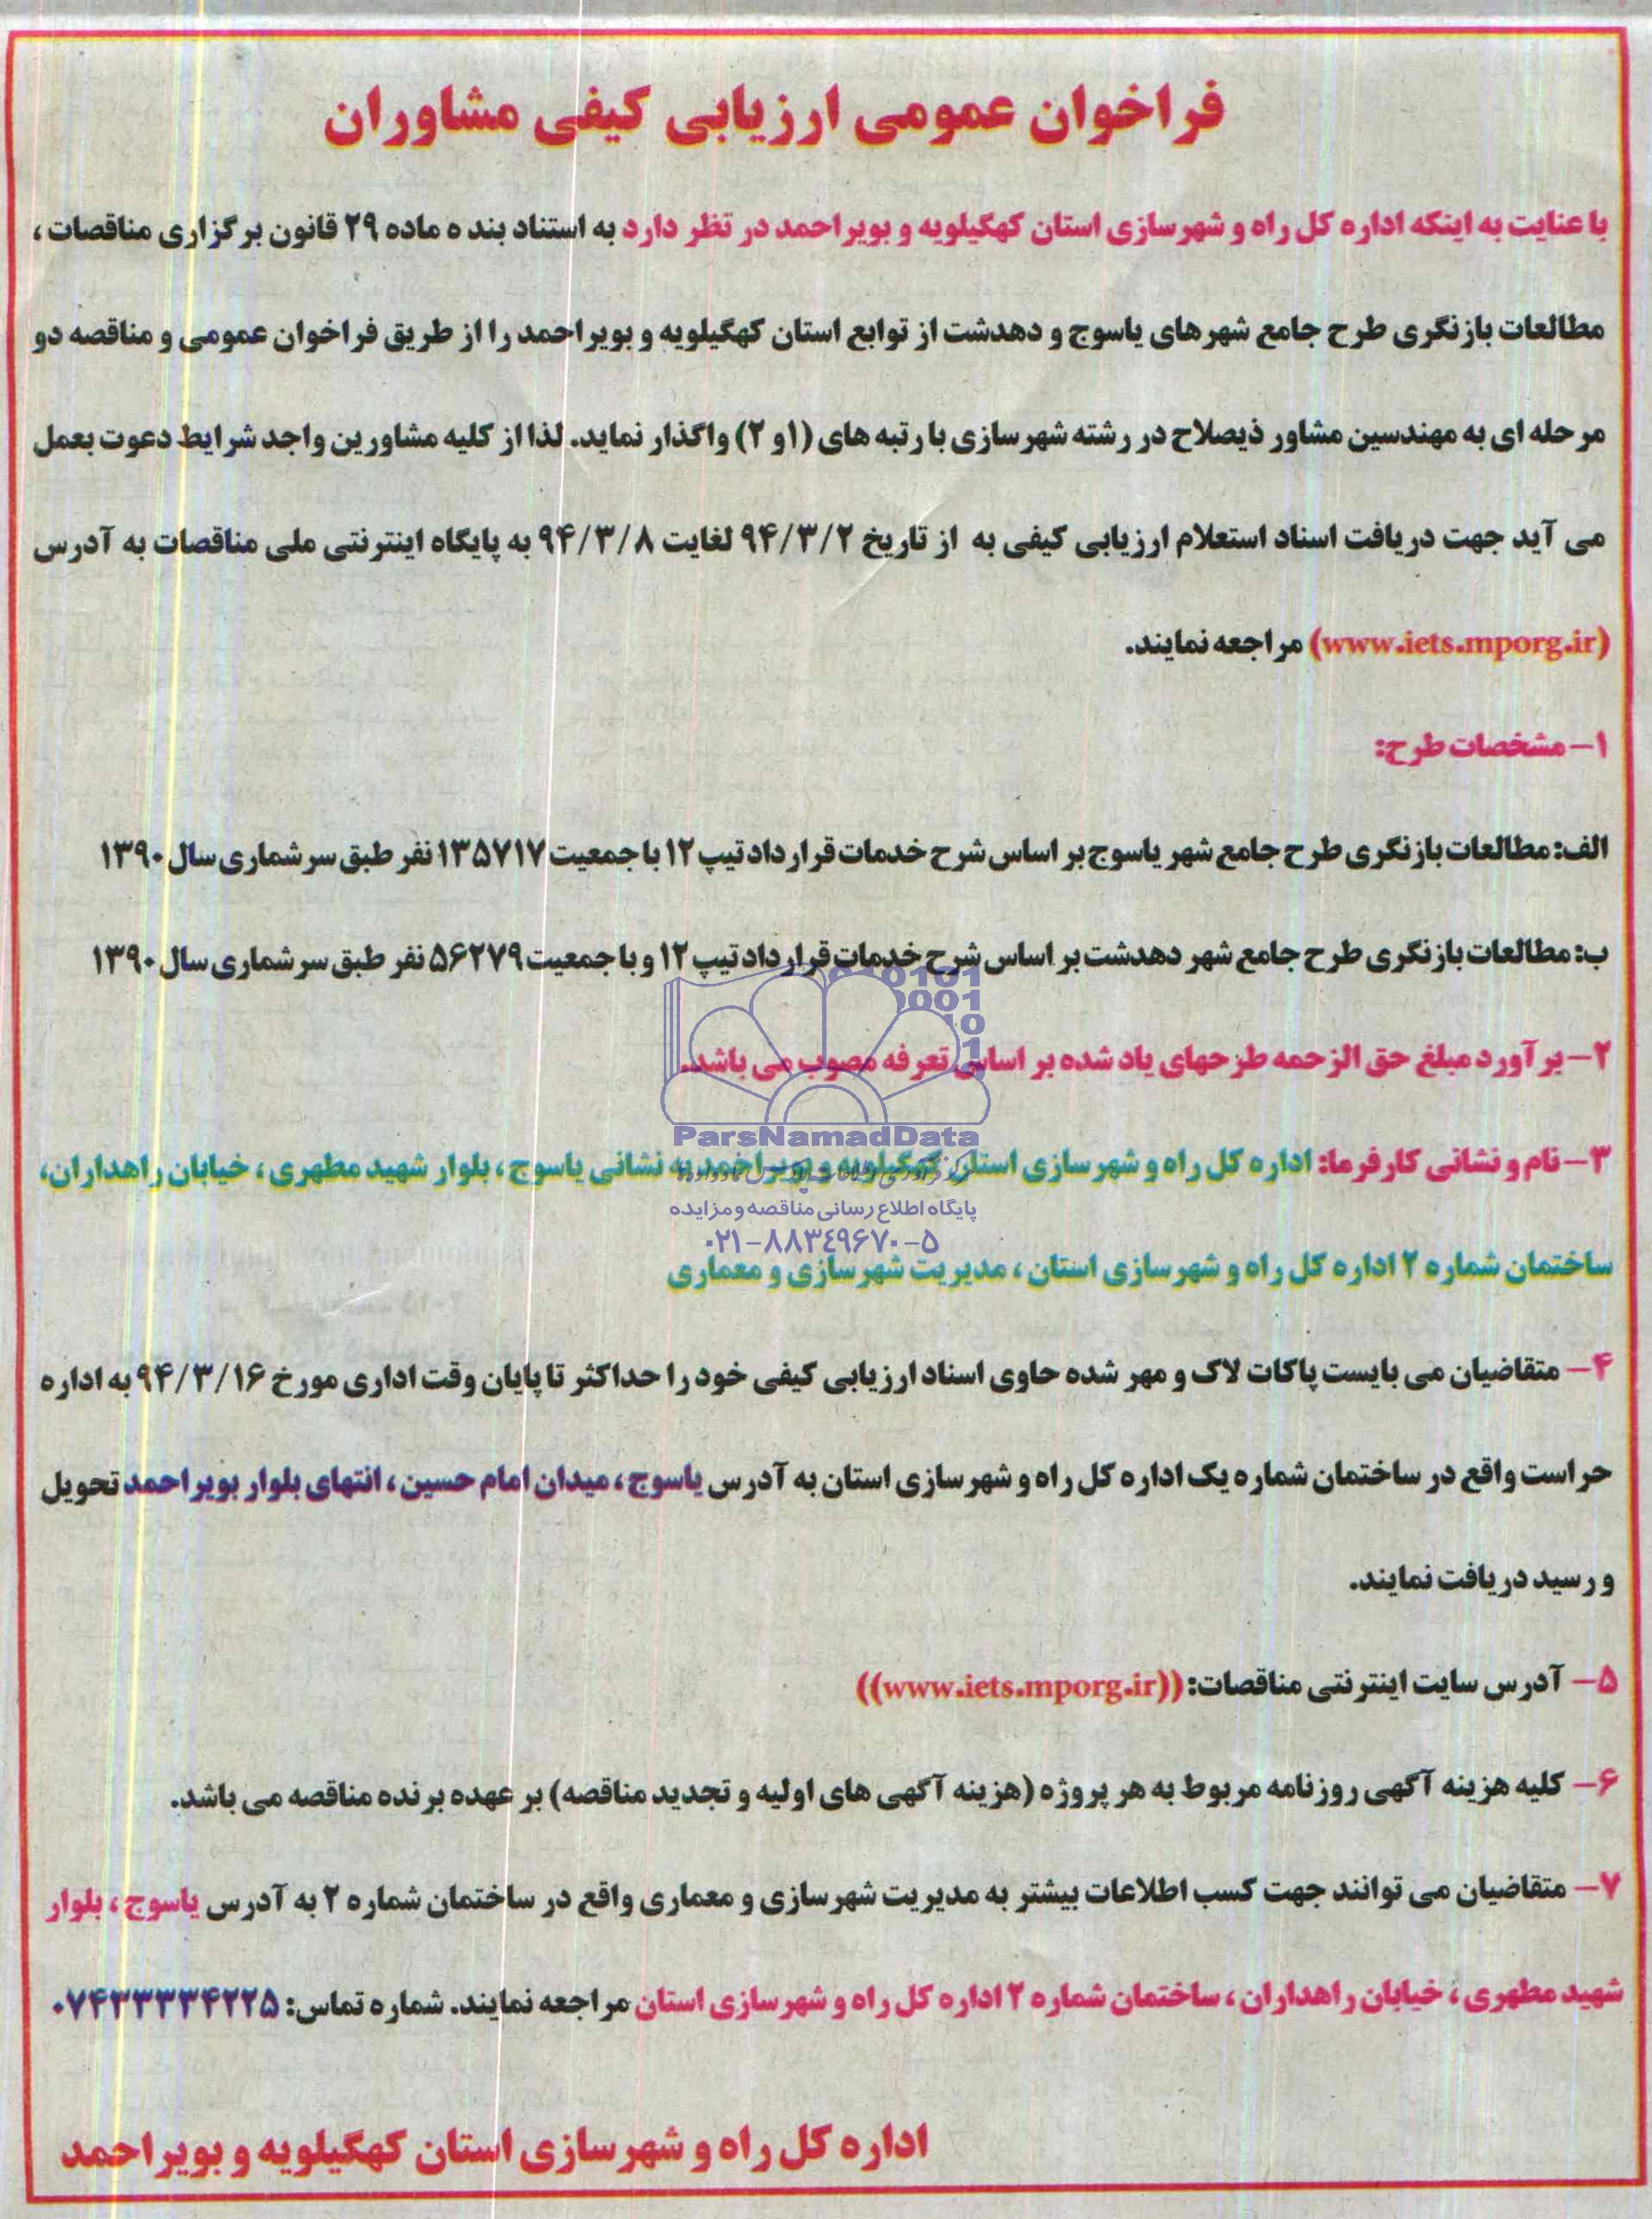 فراخوان عمومی ارزیابی کیفی مشاوران
با عنایت به اینکه اداره کل راه و شهرسازی استان کهگیلویه و بویراحمد در نظر دارد به استناد بند ه ماده ۲۹ قانون برگزاری مناقصات ،
مطالعات بازنگری طرح جامع شهرهای یاسوج و دهدشت از توابع استان کهگیلویه و بویراحمد را از طریق فراخوان عمومی و مناقصه دو
مرحله ای به مهندسین مشاور ذیصلاح در رشته شهرسازی با رتبه های (۱و ۲) واگذار نماید. لذا از کلیه مشاورین واجد شرایط دعوت بعمل
می آید جهت دریافت اسناد استعلام ارزیابی کیفی به از تاریخ ۹۴/۳/۲ لغایت ۹۴/۳/۸ به پایگاه اینترنتی ملی مناقصات به آدرس
(www.iets.mporg.ir) مراجعه نمایند.
۱- مشخصات طرح:
الف: مطالعات بازنگری طرح جامع شهر یاسوج بر اساس شرح خدمات قرارداد تیپ ۱۲ با جمعیت ۱۳۵۷۱۷ نفر طبق سرشماری سال ۱۳۹۰
ب: مطالعات بازنگری طرح جامع شهر دهدشت بر اساس شرح خدمات قرارداد تیپ ۱۲ و با جمعیت ۵۶۲۷۹ نفر طبق سرشماری سال ۱۳۹۰
۲- برآورد مبلغ حق الزحمه طرحهای یاد شده بر اساس تعرفه مصوب می باشد.
ParsNamadData
۳- نام و نشانی کارفرما: اداره کل راه و شهرسازی استان کهگیلویه و بویراحمد به نشانی یاسوج ، بلوار شهید مطهری ، خیابان راهداران،
پایگاه اطلاع رسانی مناقصه و مزایده
۰۲۱-۸۸۳۴۹۶۷۰-۵
ساختمان شماره ۲ اداره کل راه و شهرسازی استان ، مدیریت شهرسازی و معماری
۴- متقاضیان می بایست پاکات لاک و مهر شده حاوی اسناد ارزیابی کیفی خود را حداکثر تا پایان وقت اداری مورخ ۹۴/۳/۱۶ به اداره
حراست واقع در ساختمان شماره یک اداره کل راه و شهرسازی استان به آدرس یاسوج ، میدان امام حسین ، انتهای بلوار بویراحمد تحویل
و رسید دریافت نمایند.
۵- آدرس سایت اینترنتی مناقصات: ((www.iets.mporg.ir))
۶- کلیه هزینه آگهی روزنامه مربوط به هر پروژه (هزینه آگهی های اولیه و تجدید مناقصه) بر عهده برنده مناقصه می باشد.
۷- متقاضیان می توانند جهت کسب اطلاعات بیشتر به مدیریت شهرسازی و معماری واقع در ساختمان شماره ۲ به آدرس یاسوج ، بلوار
شهید مطهری ، خیابان راهداران ، ساختمان شماره ۲ اداره کل راه و شهرسازی استان مراجعه نمایند. شماره تماس: ۰۷۴۳۳۳۳۴۲۲۵
اداره کل راه و شهرسازی استان کهگیلویه و بویراحمد